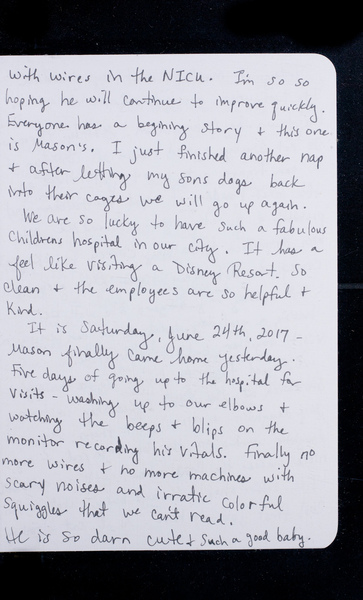 with wires in the NICU. I'm so so
hoping he will continue to improve quickly.
Everyone has a begining story + this one
is Mason's. I just finished another nap
+ after letting my sons dogs back
into their cages we will go up again.
We are so lucky to have such a fabulous
Childrens hospital in our city. It has a
feel like visiting a Disney Resort. So
clean + the employees are so helpful +
Kind.
It is Saturday, June 24th, 2017 -
Mason finally came home yesterday.
Five days of going up to the hospital for
Visits - washing up to our elbows +
watching the beeps + blips on the
monitor recording his vitals. Finally no
more wires + no more machines with
scary noises and irratic colorful
squiggles that we can't read.
He is so darn cute + such a good baby.